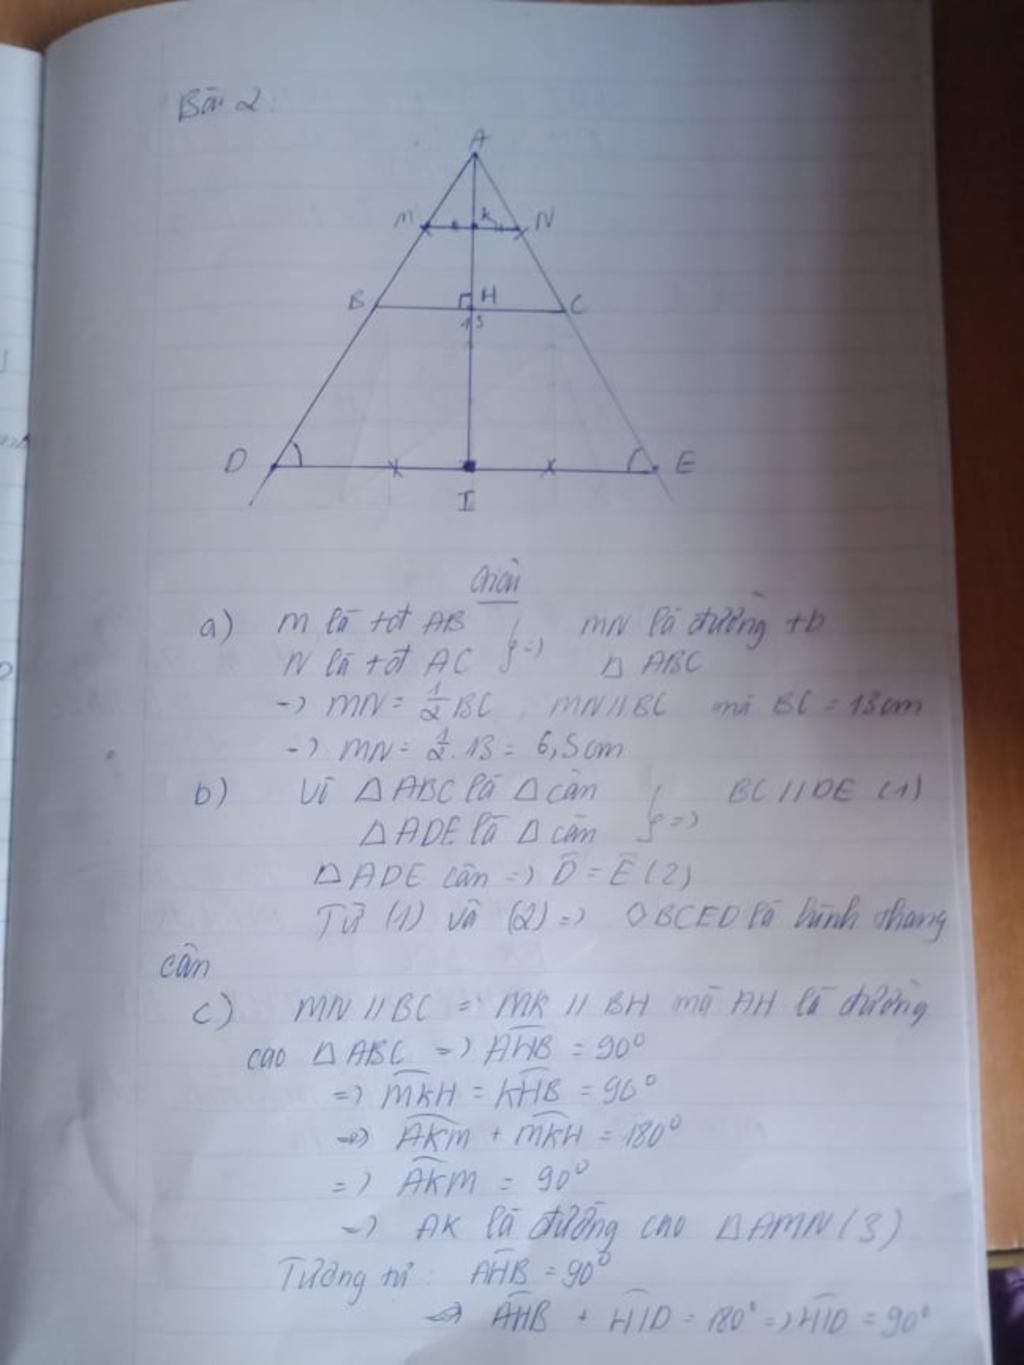 Bài 2:
A
M K N
B H C
13
D E
I
Giải
a) M là tđ AB } => MN là đường tb
N là tđ AC Δ ABC
-> MN = 1/2 BC, MN // BC mà BC = 13cm
-> MN = 1/2 . 13 = 6,5cm
b) Vì Δ ABC là Δ cân } => BC // DE (1)
Δ ADE là Δ cân
Δ ADE cân => D̂ = Ê (2)
Từ (1) và (2) => ◇BCED là hình thang
cân
c) MN // BC => MK // BH mà AH là đường
cao Δ ABC => AHB = 90°
=> MKH = KHB = 90°
=> AKM + MKH = 180°
=> AKM = 90°
-> AK là đường cao Δ AMN (3)
Tương tự: AHB = 90°
=> AHB + HID = 180° => HID = 90°